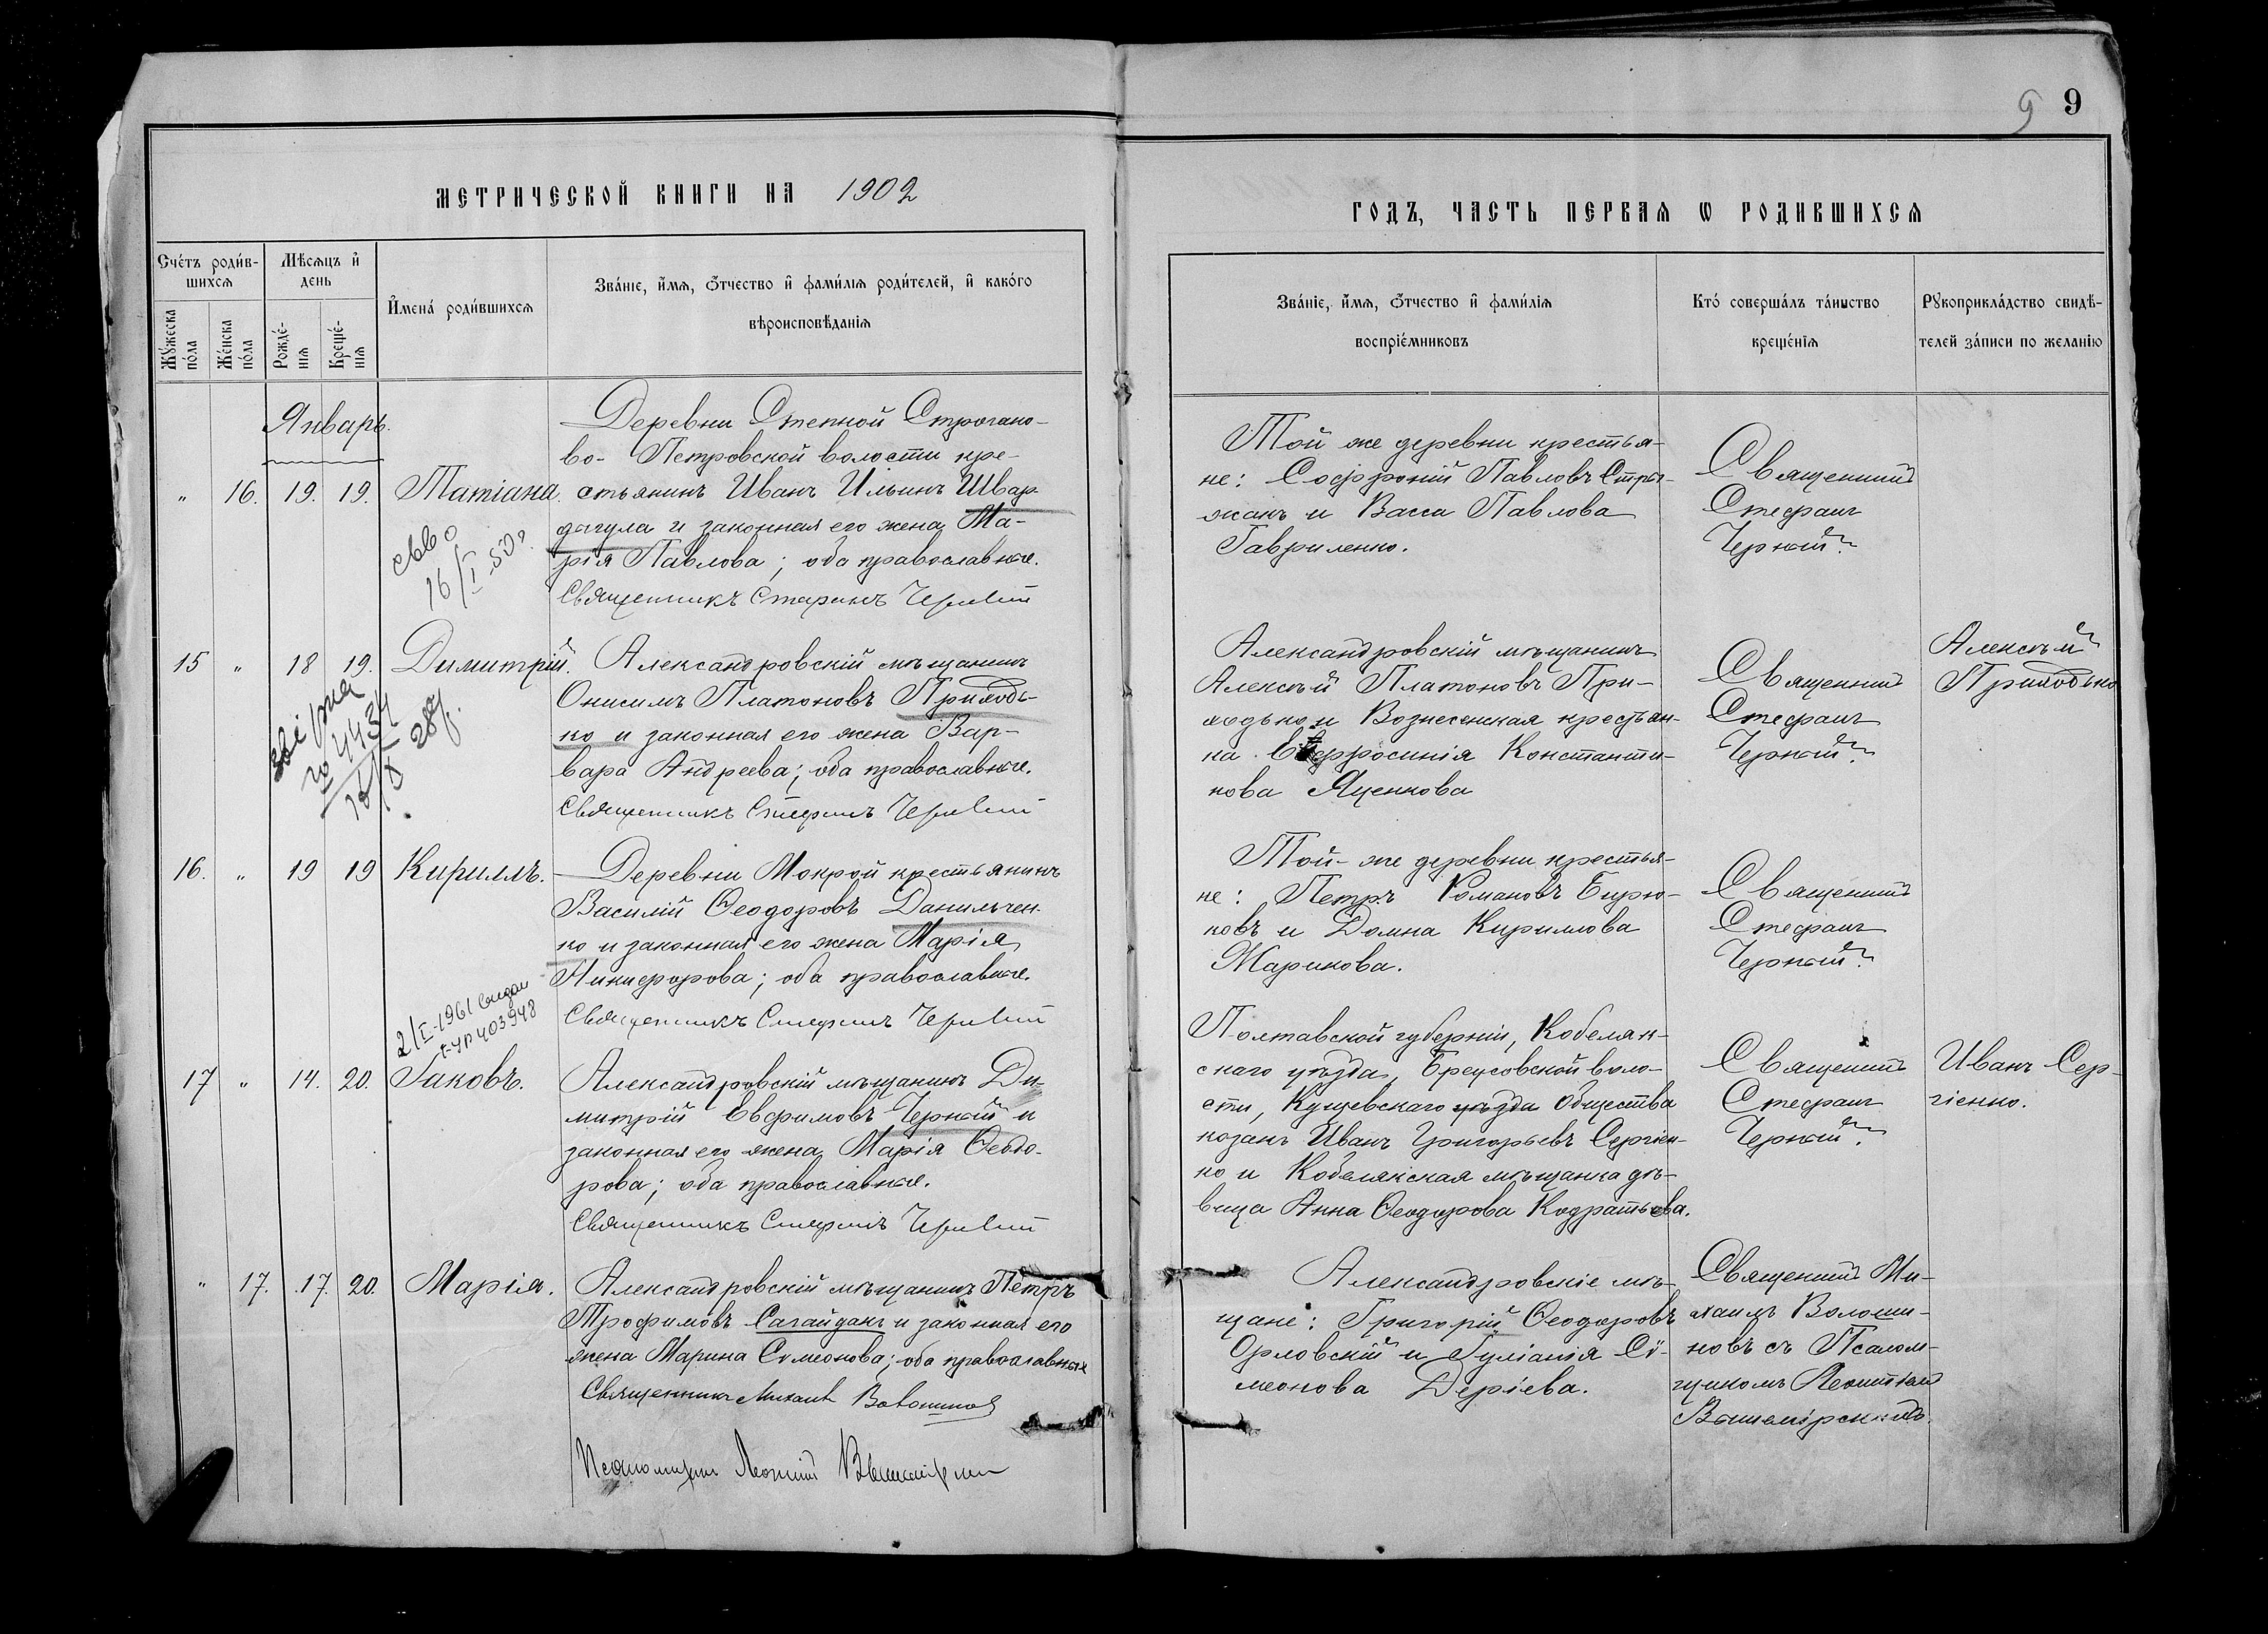 9 9
МЕТРИЧЕСКОЙ КНИГИ НА 1902
ГОДЪ, ЧАСТЬ ПЕРВАЯ Ѡ РОДИВШИХСЯ
Счетъ родив-
шихся
Мѣсяцъ и
день
Имена родившихся
Званіе, имя, отчество и фамилія родителей, и какого
вѣроисповѣданія
Мужеска
пола
Женска
пола
Рожде-
нія
Креще-
нія
Званіе, имя, отчество и фамилія
воспріемниковъ
Кто совершалъ таинство
крещенія
Рукоприкладство свидѣ-
телей записи по желанію
Январь.
" 16. 19. 19. Татіана
Деревни Степной Строгано-
во- Петровской волости кре-
стьянинъ Иванъ Ильинъ Швар-
дагула и законная его жена Ма-
рія Павлова; оба православные.
Священникъ Стефанъ Черный
16/I 50
Той же деревни крестья-
не: Софроній Павловъ Стри-
жакъ и Васса Павлова
Гавриленко.
Священникъ
Стефанъ
Черный
15 " 18 19. Димитрій.
Александровскій мѣщанинъ
Онисимъ Платоновъ Приходь-
ко и законная его жена Вар-
вара Андреева; оба православные.
Священникъ Стефанъ Черный
Александровскій мѣщанинъ
Алексѣй Платоновъ При-
ходько и Вознесенская крестьян-
ка Евфросинія Константи-
нова Яценкова
Священникъ
Стефанъ
Черный
Алексѣй
Приходько
16. " 19 19 Кириллъ.
Деревни Мокрой крестьянинъ
Василій Ѳеодоровъ Данильчен-
ко и законная его жена Марія
Никифорова; оба православные.
Священникъ Стефанъ Черный
Той-же деревни крестья-
не: Петръ Романовъ Бирю-
ковъ и Домна Кириллова
Жарикова.
Священникъ
Стефанъ
Черный
2/I-1961
403948
17 " 14. 20. Іаковъ.
Александровскій мѣщанинъ Ди-
митрій Евфимовъ Черный и
законная его жена Марія Ѳеодо-
рова; оба православные.
Священникъ Стефанъ Черный
Полтавской губерніи, Кобеляк-
скаго уѣзда, Бреусовской воло-
сти, Кущевскаго уѣзда Общества
козакъ Иванъ Григорьевъ Сергіен-
ко и Кобелякская мѣщанка дѣ-
вица Анна Ѳеодорова Кодратьева.
Священникъ
Стефанъ
Черный
Иванъ Сер-
гіенко.
" 17. 17. 20. Марія.
Александровскій мѣщанинъ Петръ
Трофимовъ Сагайдакъ и законная его
жена Марина Сѵмеонова; оба православные
Священникъ Михаилъ Волошиновъ
Псаломщикъ Леонтій
Александровскіе мѣ-
щане: Григорій Ѳеодоровъ
Орловскій и Іуліанія Сѵ-
меонова Деріева.
Священникъ Ми-
хаилъ Волоши-
новъ съ Псалом-
щикомъ Леонтіем